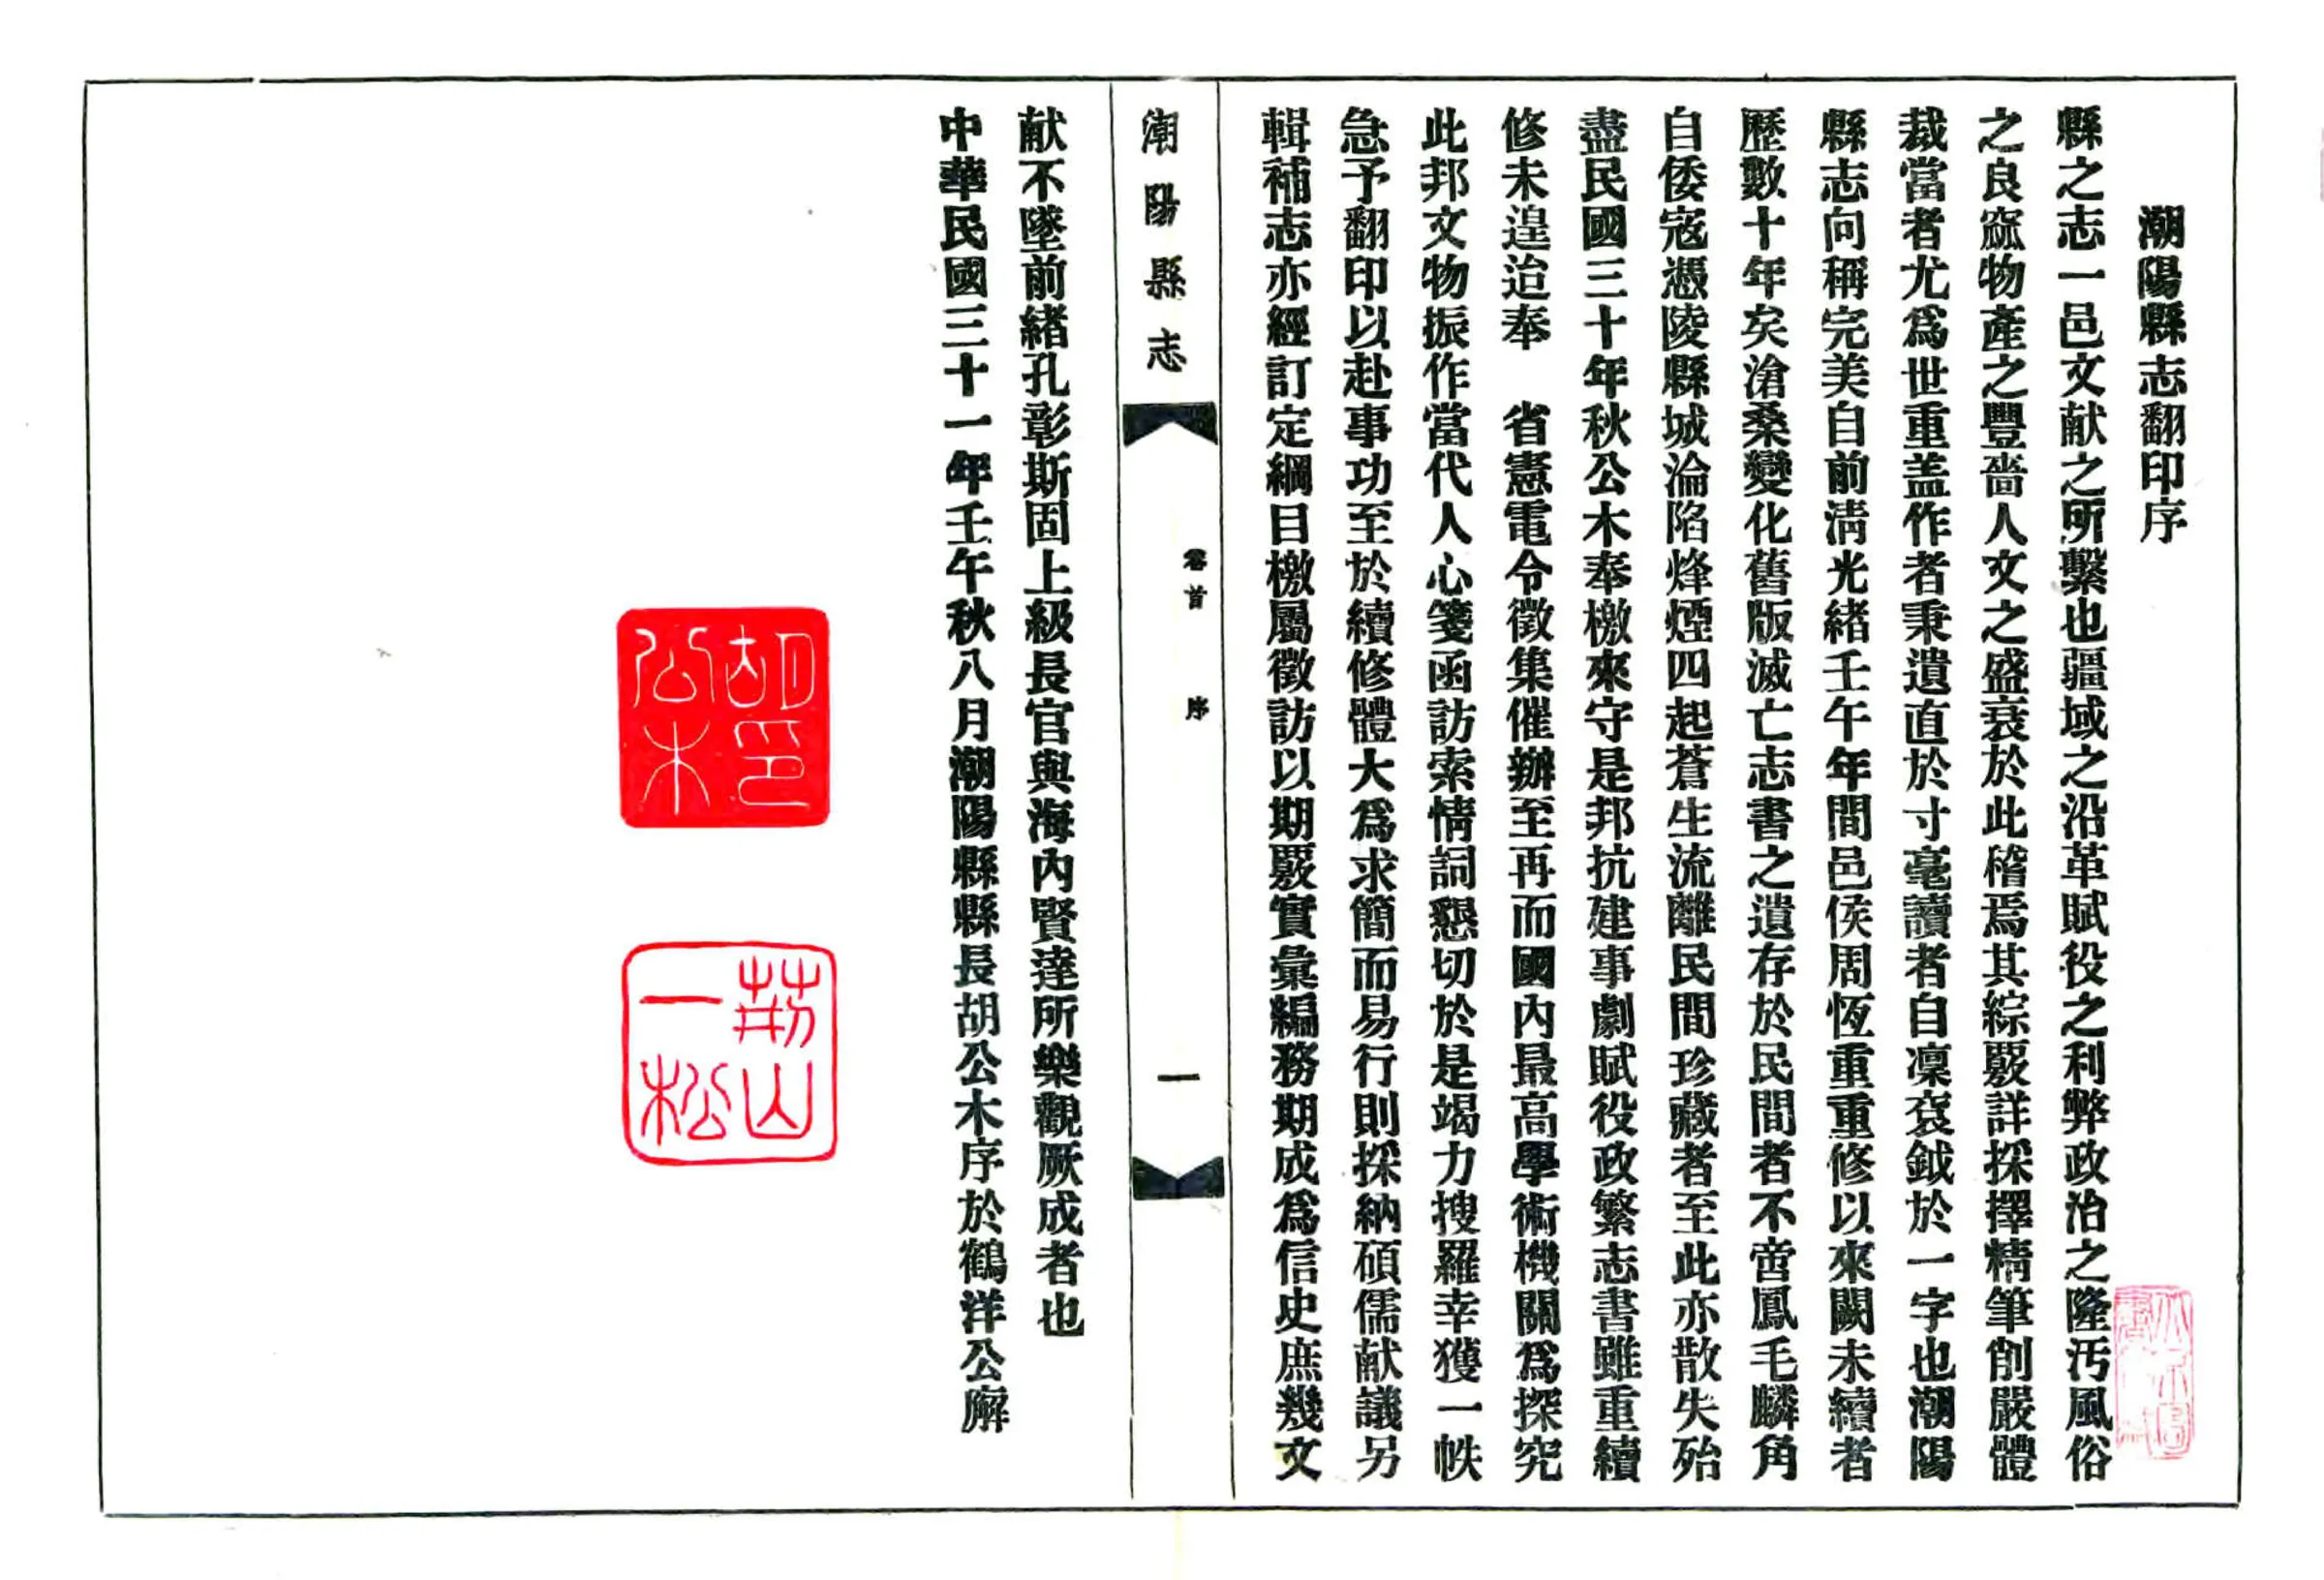 潮陽縣志翻印序
縣之志一邑文献之所繫也疆域之沿革賦役之利弊政治之隆汚風俗
之良窳物產之豐嗇人文之盛衰於此稽焉其綜覈詳採擇精筆削嚴體
裁當者尤爲世重盖作者秉遺直於寸毫讀者自凛袞鉞於一字也潮陽
縣志向稱完美自前淸光緒壬午年間邑侯周恆重重修以來闕未續者
歷數十年矣滄桑變化舊版滅亡志書之遺存於民間者不啻鳳毛麟角
自倭寇憑陵縣城淪陷烽煙四起蒼生流離民間珍藏者至此亦散失殆
盡民國三十年秋公木奉檄來守是邦抗建事劇賦役政繁志書雖重續
修未遑迨奉　省憲電令徵集催辦至再而國內最高學術機關爲探究
此邦文物振作當代人心箋函訪索情詞懇切於是竭力搜羅幸獲一帙
急予翻印以赴事功至於續修體大爲求簡而易行則採納碩儒献議另
輯補志亦經訂定綱目檄屬徵訪以期覈實彙編務期成爲信史庶幾文
潮陽縣志
卷首　序
一
献不墜前緒孔彰斯固上級長官與海內賢達所樂觀厥成者也
中華民國三十一年壬午秋八月潮陽縣縣長胡公木序於鶴洋公廨
胡印
公木
荊山
一松